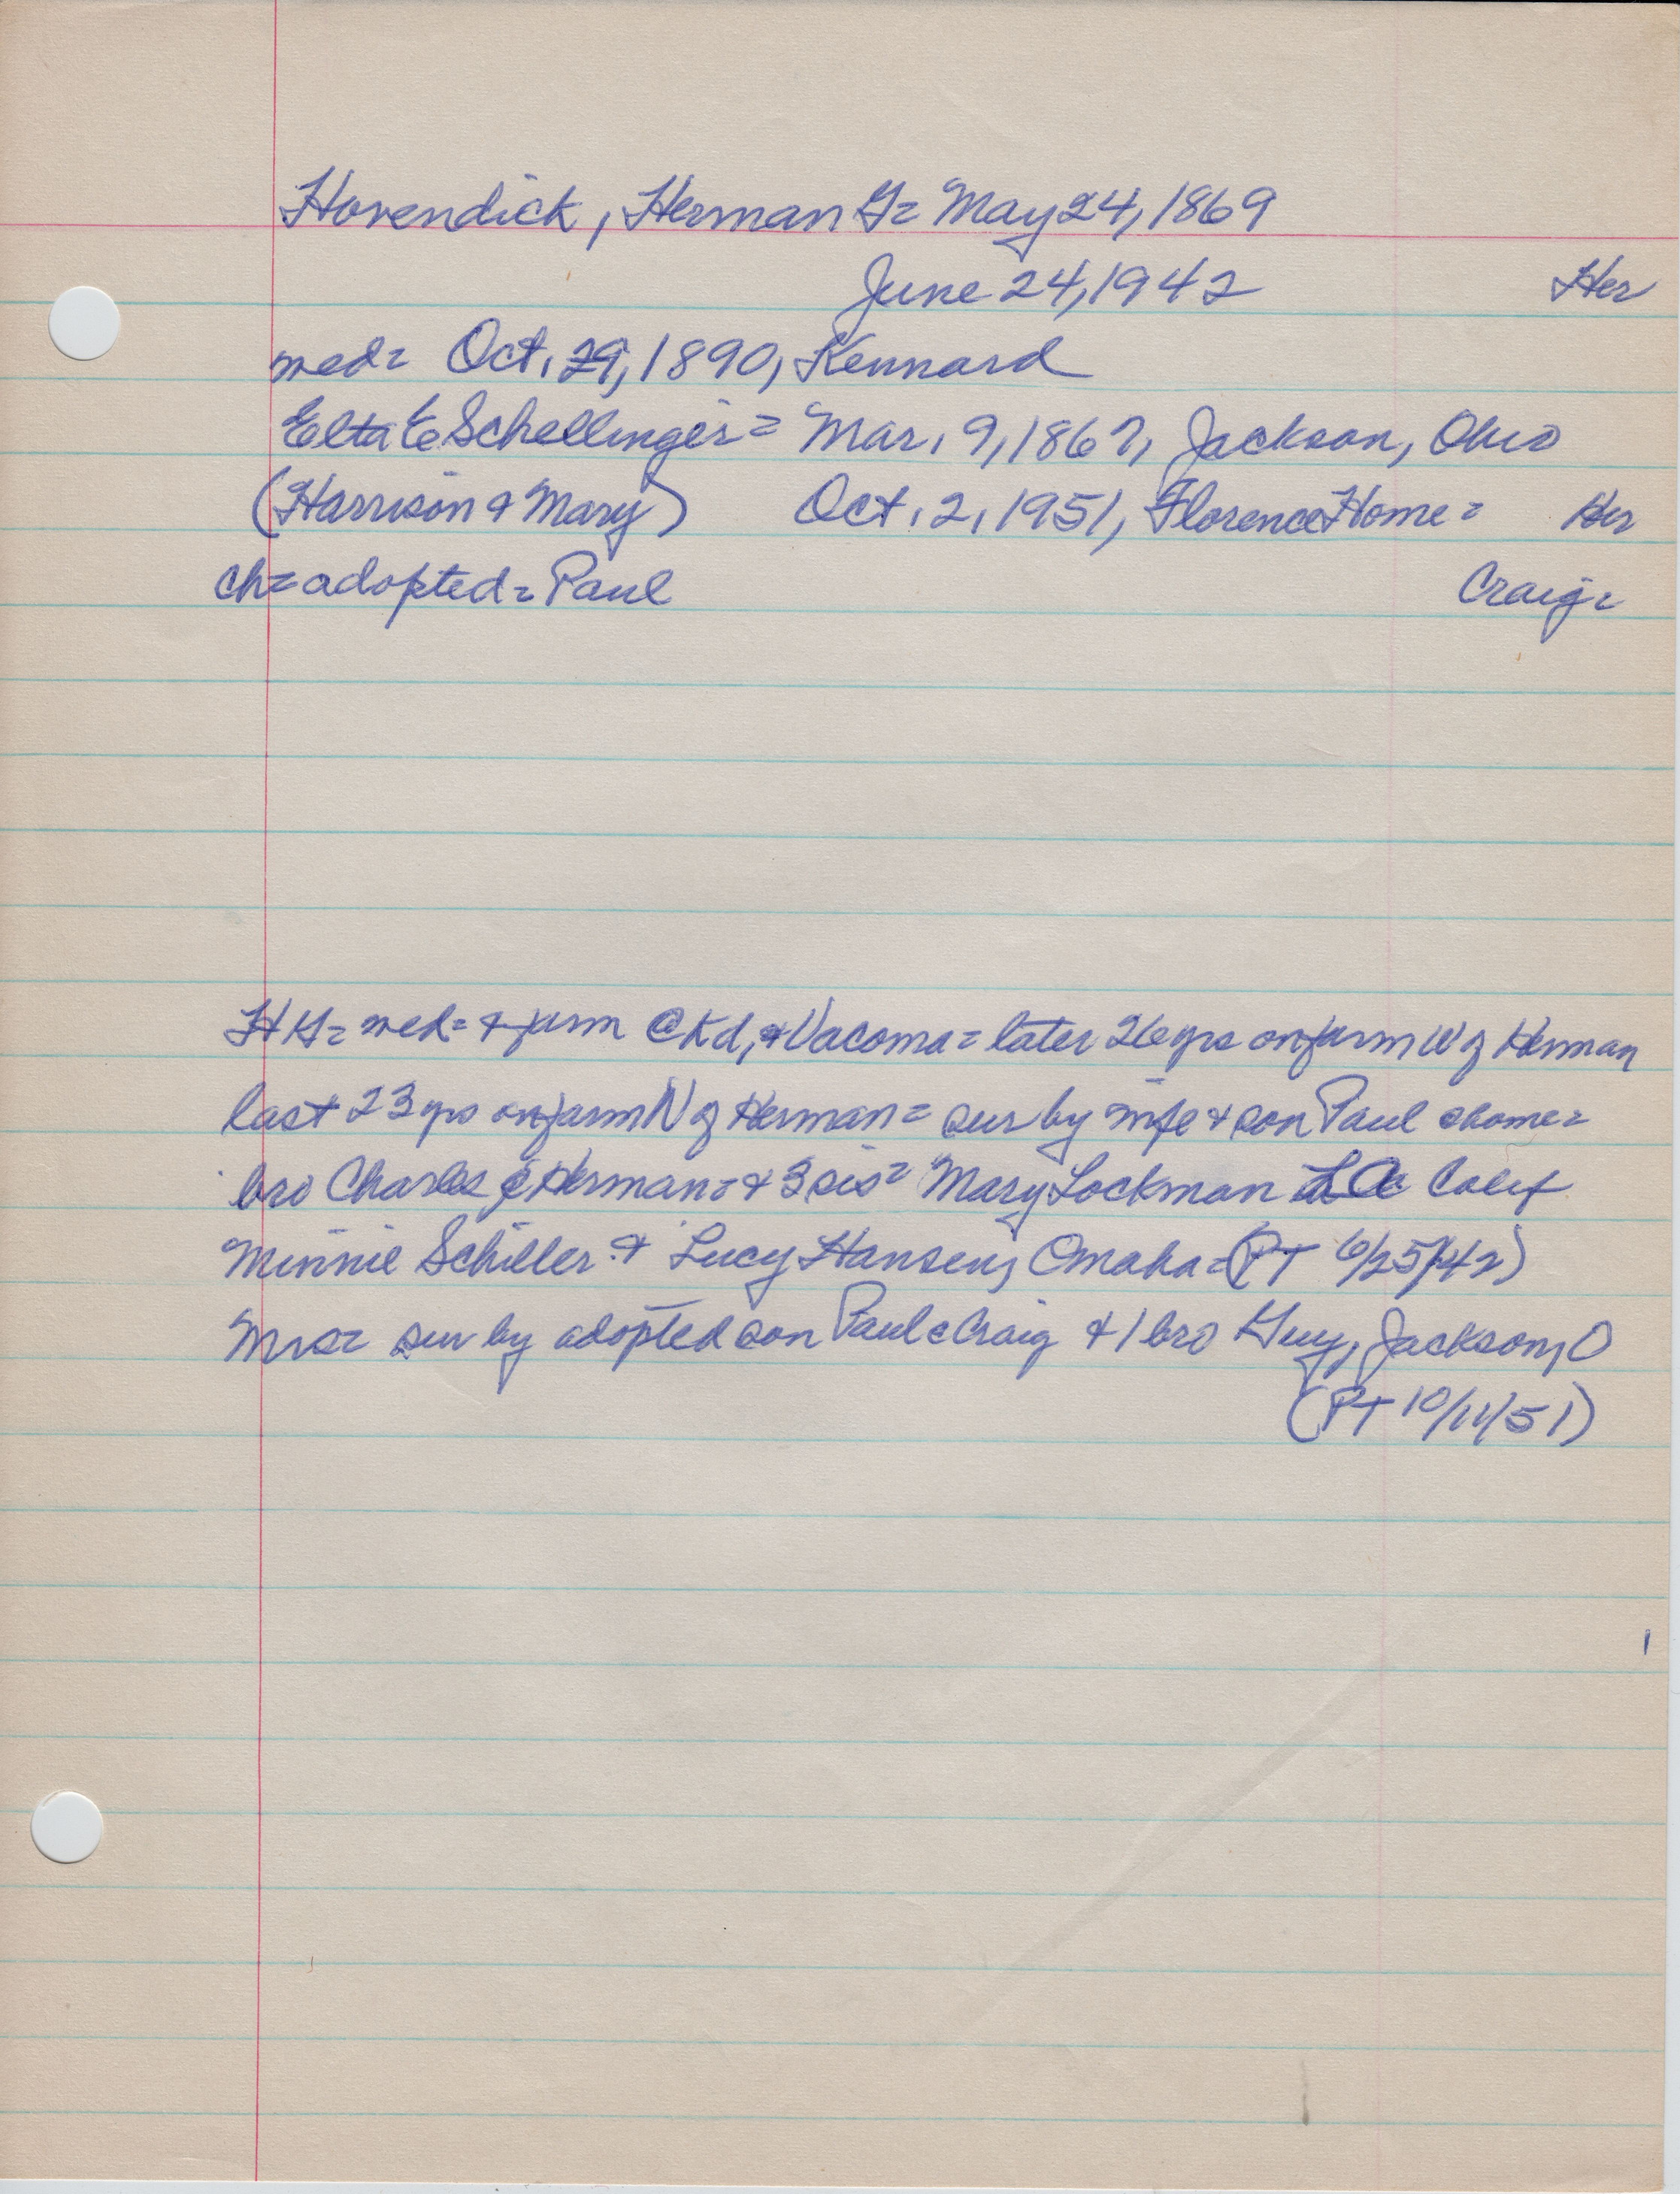 Hovendick, Herman G= May 24, 1869
June 24, 1942 Her
wed= Oct. 29, 1890, Kennard
Elta E Schellinger= Mar. 9, 1867, Jackson, Ohio
(Harrison & Mary) Oct. 2, 1951, Florence Home= Her
ch= adopted= Paul Craig=
HH= wed= & farm @ Kd, & Vacoma= later 26 yrs on farm W of Herman
last 23 yrs on farm N of Herman= sur by wife & son Paul @ home=
bro Charles @ Herman= & 3 sis= Mary Lockman LA Calif
Minnie Schiller & Lucy Hansen, Omaha= (PT 6/25/42)
Mrs= sur by adopted son Paul @ Craig & 1 bro Guy, Jackson, O
(PT 10/11/51)